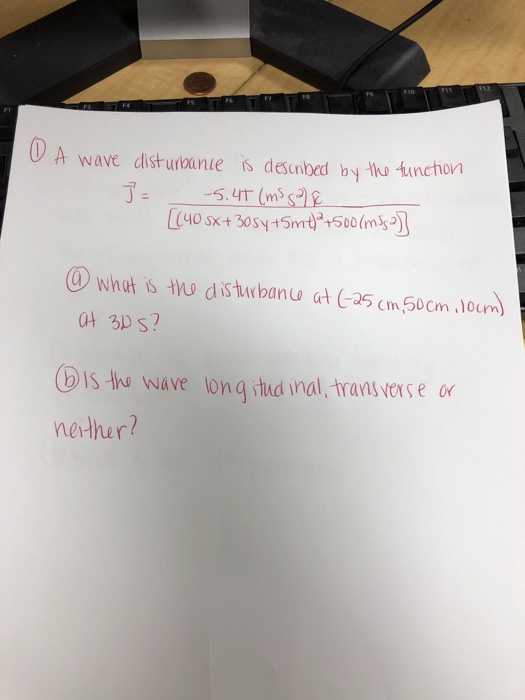 ① A wave disturbance is described by the function
J⃗ = -5.4T (m⁵s²) k̂
[(40 sx + 30sy + 5mt)² + 500 (m⁵s²)]
ⓐ What is the disturbance at (-25 cm, 50cm, 10cm)
at 3.0 s?
ⓑ Is the wave longitudinal, transverse or
neither?